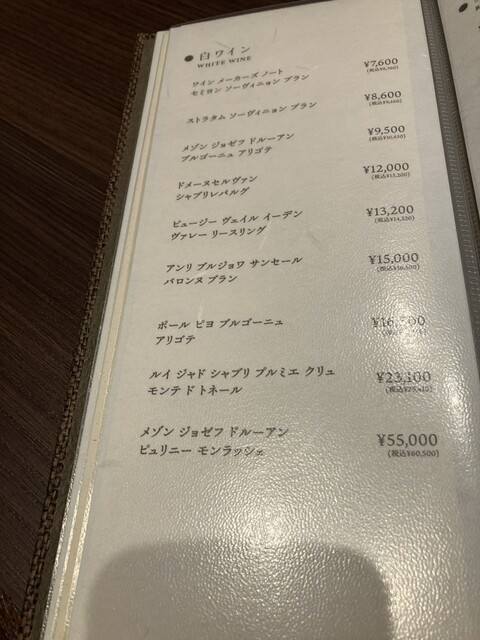 ● 白ワイン
WHITE WINE
ワイン メーカーズ ノート
セミヨン ソーヴィニョン ブラン
¥7,600
ストラタム ソーヴィニョン ブラン
¥8,600
メゾン ジョゼフ ドルーアン
ブルゴーニュ アリゴテ
¥9,500
(税込¥10,450)
ドメーヌセルヴァン
シャブリレパルグ
¥12,000
(税込¥13,200)
ピュージー ヴェイル イーデン
ヴァレー リースリング
¥13,200
(税込¥14,520)
アンリ ブルジョワ サンセール
バロンヌ ブラン
¥15,000
(税込¥16,500)
ポール ピヨ ブルゴーニュ
アリゴテ
ルイ ジャド シャブリ プルミエ クリュ
モンテ ド トネール
¥23,100
メゾン ジョゼフ ドルーアン
ピュリニー モンラッシェ
¥55,000
(税込¥60,500)